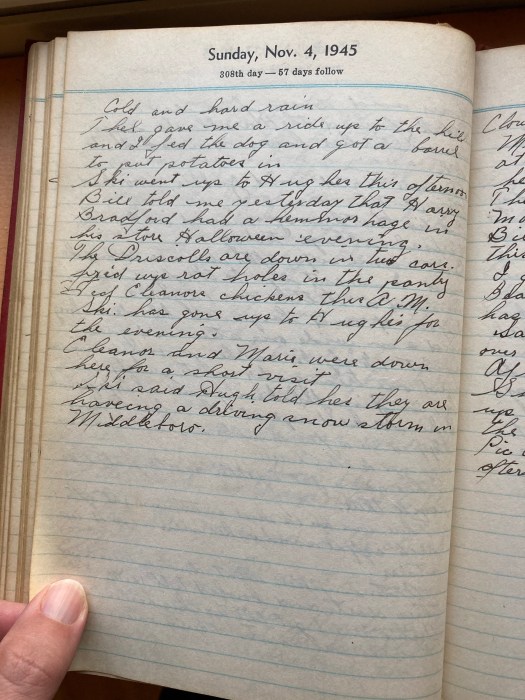 Sunday, Nov. 4, 1945
308th day — 57 days follow
Cold and hard rain
Thel gave me a ride up to the hill
and I fed the dog and got a barrel
to put potatoes in
Ski went up to Hughes this afternoon
Bill told me yesterday that Harry
Bradford had a hemmorhage in
his store Halloween evening.
The Driscolls are down in two cars.
fixed up rat holes in the pantry
of Eleanors chickens this A.M.
Ski has gone up to Hughes for
the evening.
Eleanor and Marie were down
here for a short visit
said Hugh told hes they are
haveing a driving snow storm in
Middleboro.
Clou
M
at
he
Th
m
Bi
this
I
Bea
hag
sa
over
up
the
Pic
after